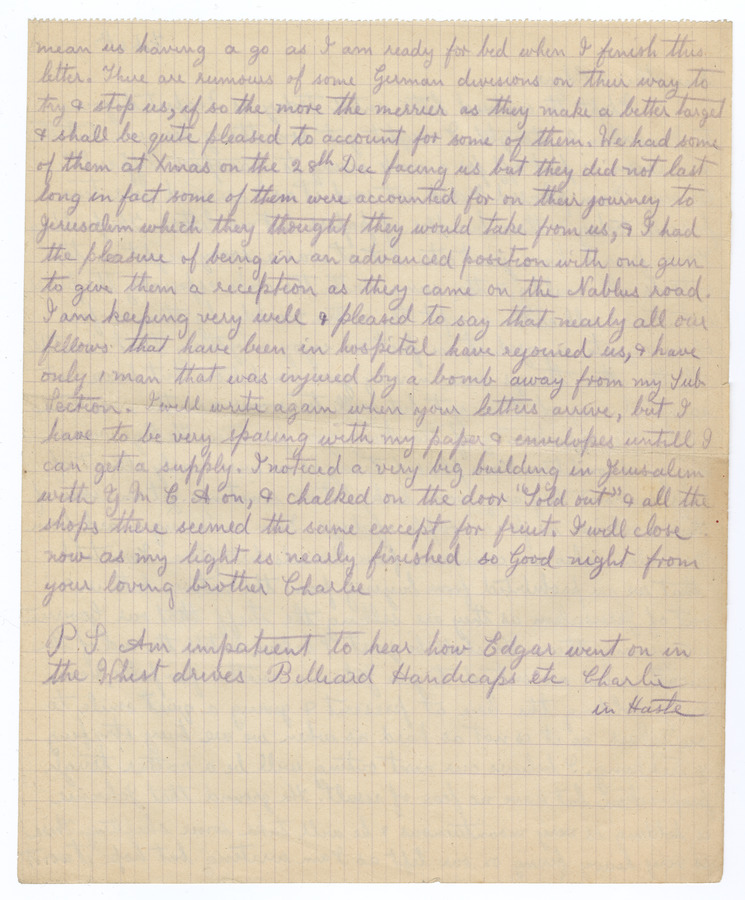 mean us having a go as I am ready for bed when I finish this
letter. There are rumours of some German divisions on their way to
try & stop us, if so the more the merrier as they make a better target
& shall be quite pleased to account for some of them. We had some
of them at Xmas on the 28th Dec facing us but they did not last
long in fact some of them were accounted for on their journey to
Jerusalem which they thought they would take from us, & I had
the pleasure of being in an advanced position with one gun
to give them a reception as they came on the Nablus road.
I am keeping very well & pleased to say that nearly all our
fellows that have been in hospital have rejoined us, & have
only 1 man that was injured by a bomb away from my Sub
Section. I will write again when your letters arrive, but I
have to be very sparing with my paper & envelopes untill I
can get a supply. I noticed a very big building in Jerusalem
with Y M C A on, & chalked on the door "Sold out" & all the
shops there seemed the same except for fruit. I will close
now as my light is nearly finished so Good night from
your loving brother Charlie
P.S Am impatient to hear how Edgar went on in
the Whist drives Billiard Handicaps etc Charlie
in Haste